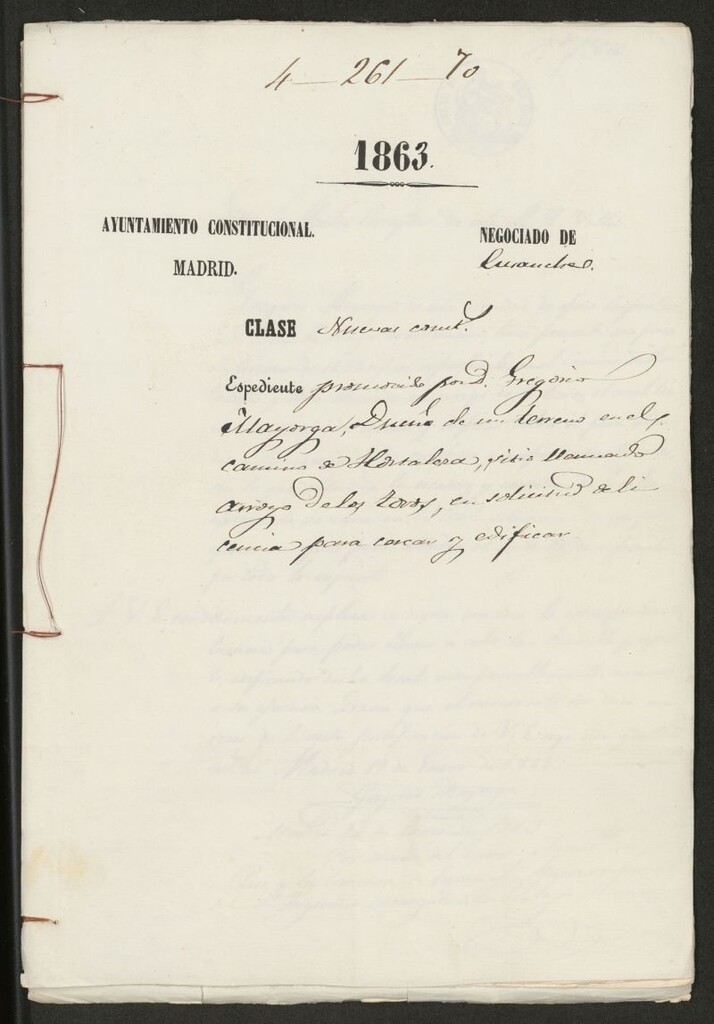 4-261-70
1863.
AYUNTAMIENTO CONSTITUCIONAL.
MADRID.
NEGOCIADO DE
Ensanche.
CLASE Nuevas const.
Espediente promovido por D. Gregorio
Mayorga, Dueño de un terreno en el
camino de Hortaleza, sitio llamado
arroyo de los Zorros, en solicitud de li
cencia para cercar y edificar